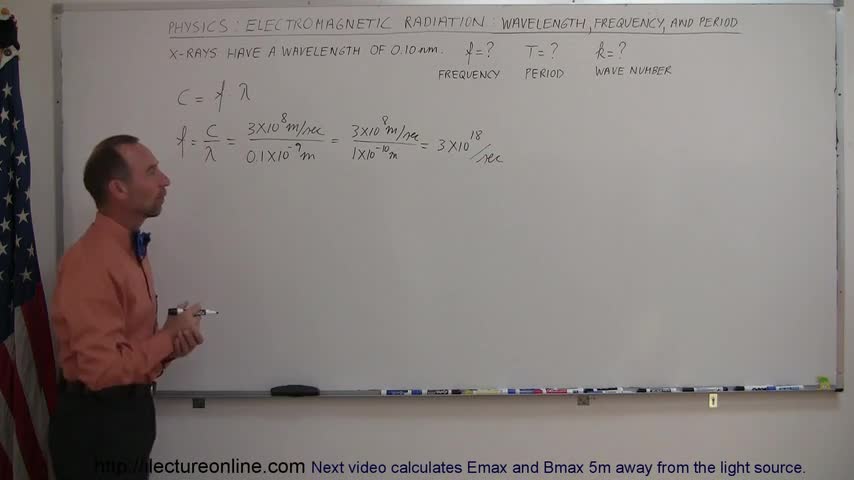 PHYSICS: ELECTROMAGNETIC RADIATION: WAVELENGTH, FREQUENCY, AND PERIOD
X-RAYS HAVE A WAVELENGTH OF 0.10 nm. f=? T=? k=?
FREQUENCY PERIOD WAVE NUMBER
C = f λ
f = C/λ = 3×10⁸ m/sec / 0.1×10⁻⁹ m = 3×10⁸ m/sec / 1×10⁻¹⁰ m = 3×10¹⁸/sec
http://ilectureonline.com Next video calculates Emax and Bmax 5m away from the light source.